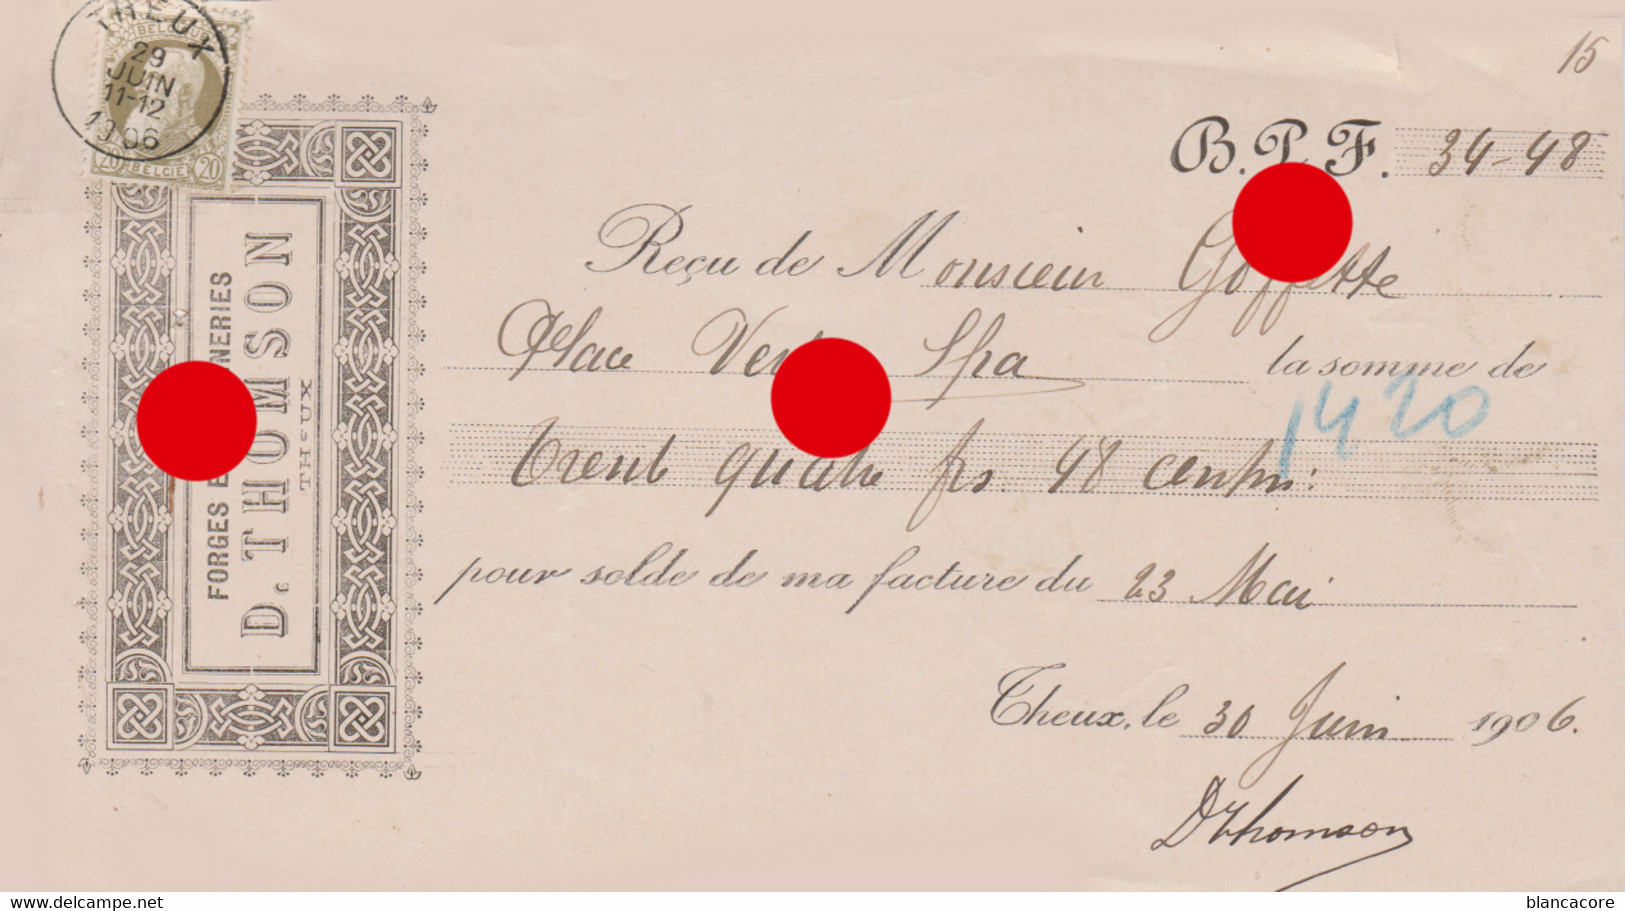 15
THEUX
29
JUIN
11-12
1906
BELGIQUE
20 BELGIE 20
FORGES E NERIES
D. THOMSON
THEUX
B. P. F. 34-48
Reçu de Monsieur Goffette
Place Spa la somme de
1420
Trent quatre frs. 48 centm:
pour solde de ma facture du 23 Mai
Theux, le 30 Juin 1906.
DThomson
delcampe.net
blancacore